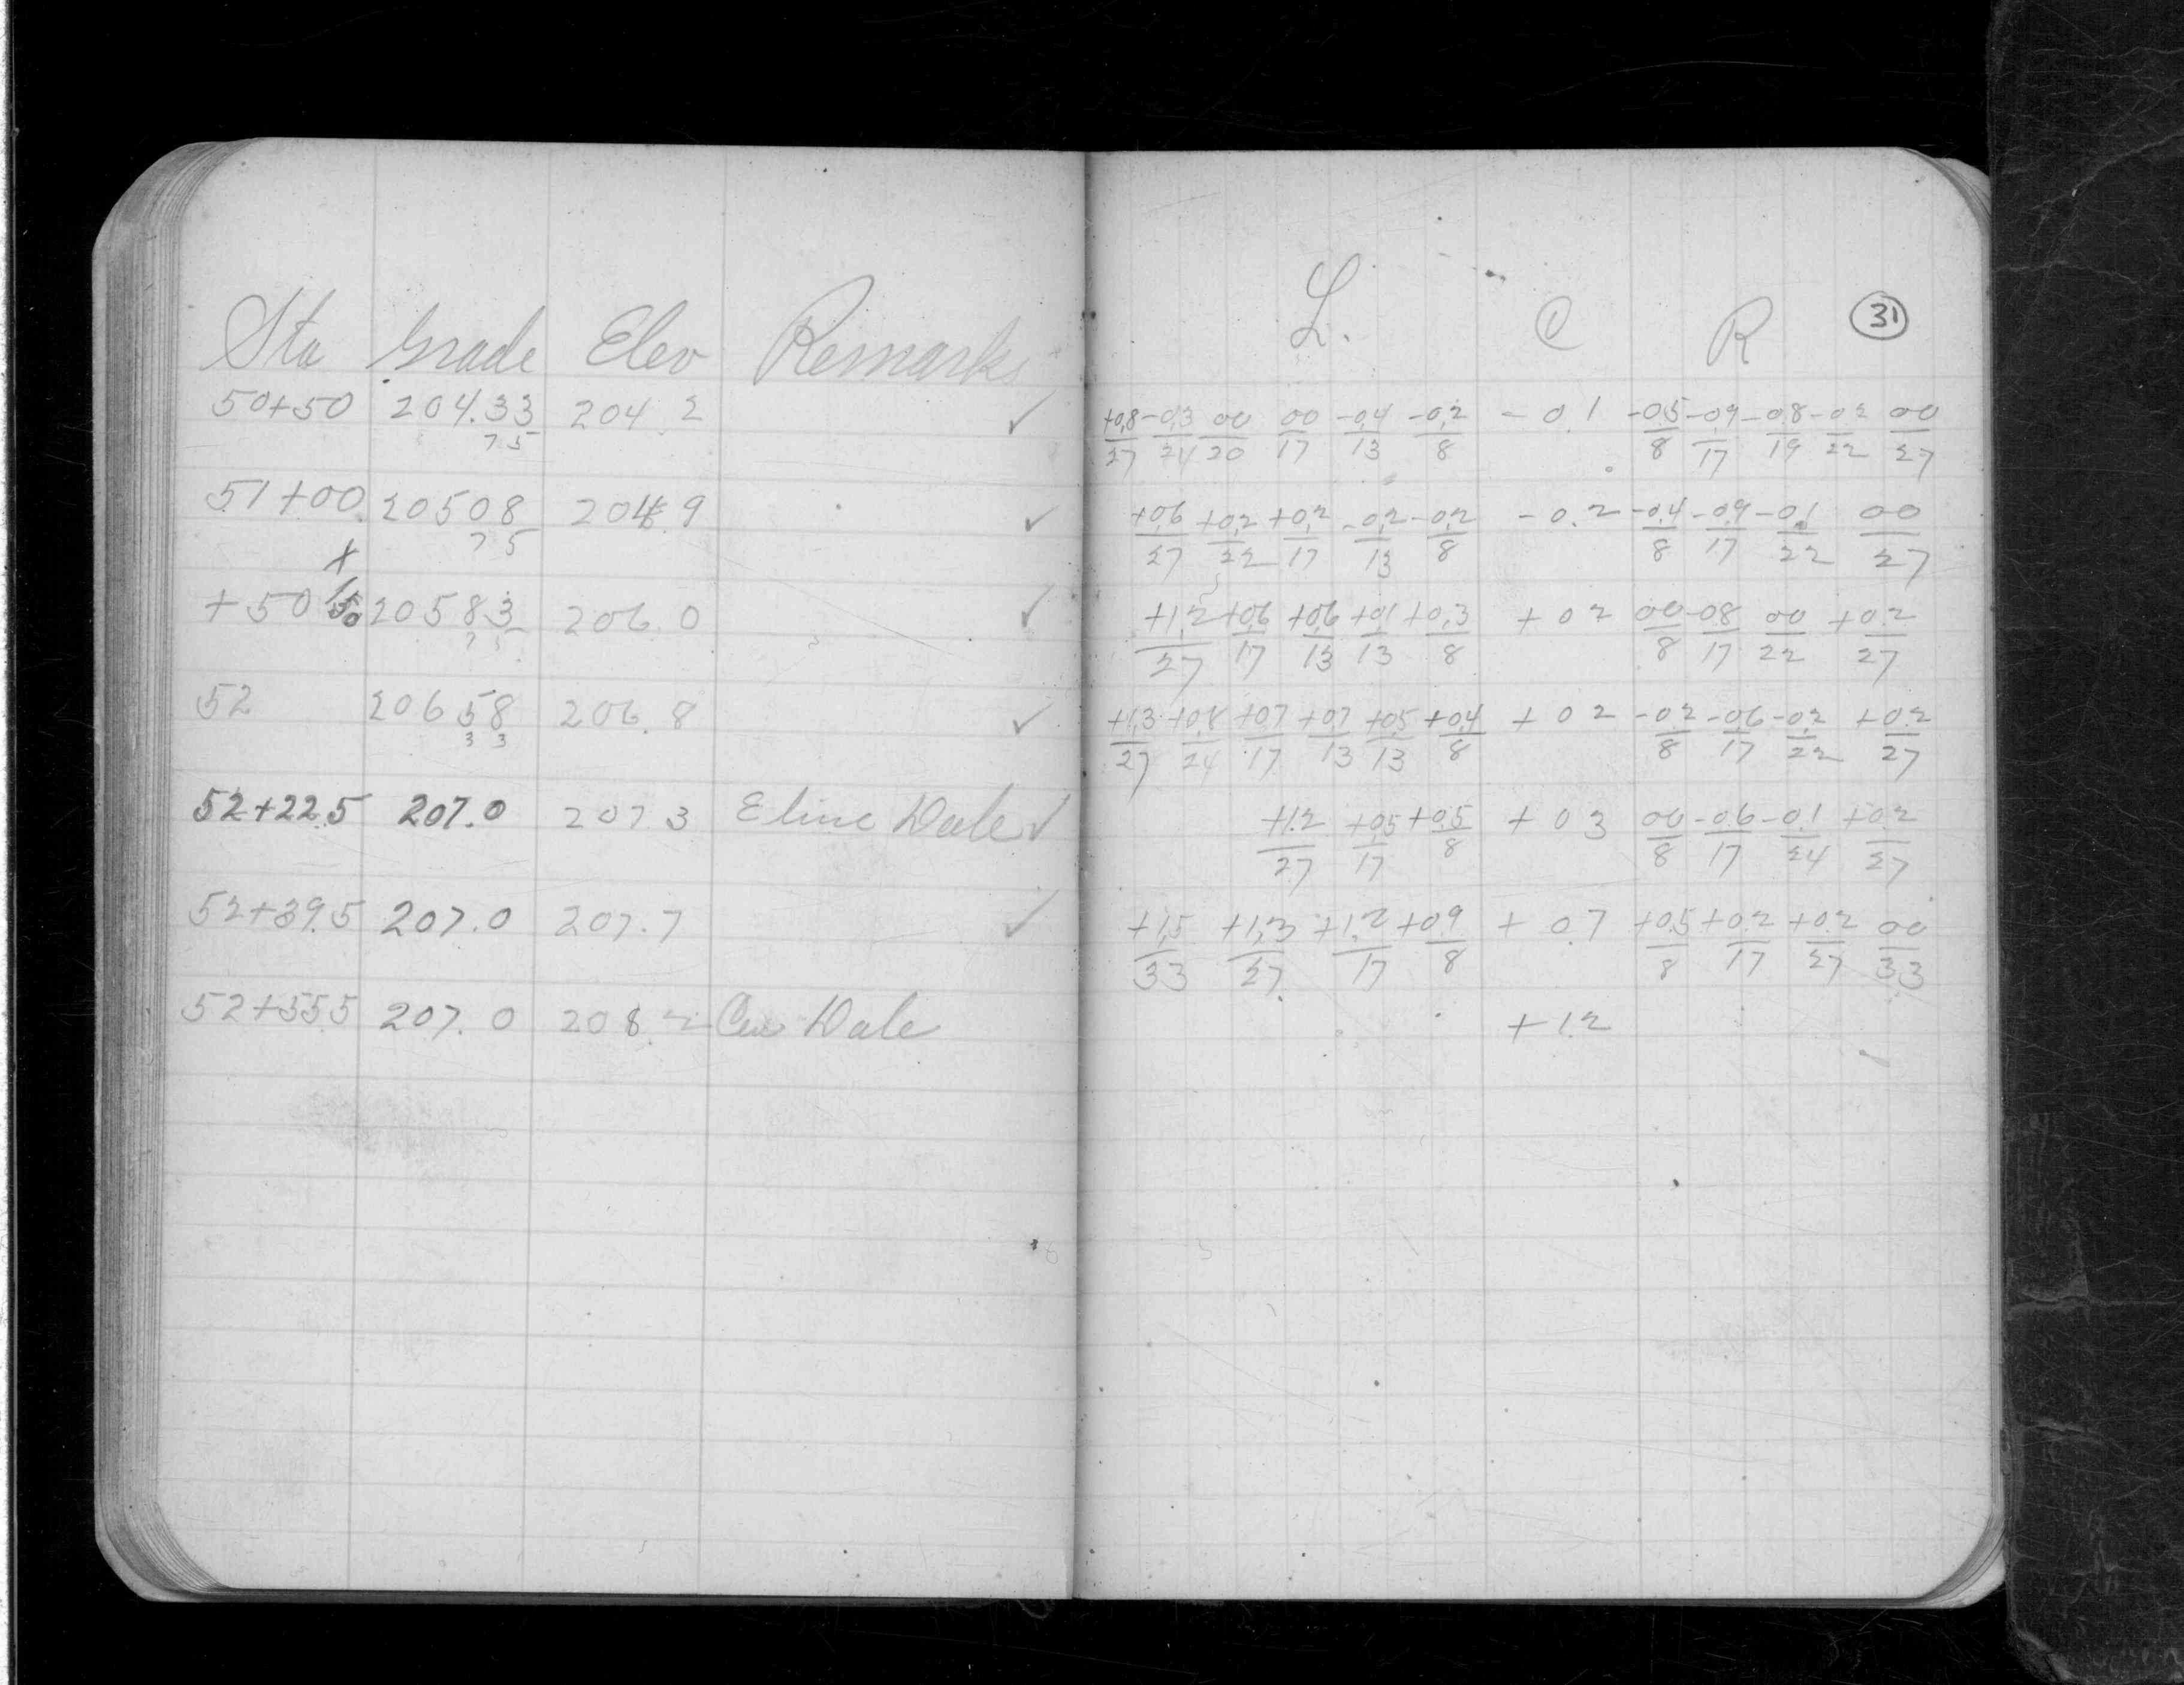 Sta Grade Elev Remarks
50+50 204.33 204.2 ✓
75
51+00 205 08 204.9 ✓
75
+50 205 83 206.0 ✓
75
52 206 58 206.8 ✓
33
52+22.5 207.0 207 3 E line Dale ✓
52+39.5 207.0 207.7 ✓
52+55.5 207.0 208.2 Cen Dale
L. C R 31
+0.8 -0.3 00 00 -0.4 -0.2 - 0.1 -0.5 -0.9 -0.8 -0.2 00
27 24 20 17 13 8 8 17 19 22 27
+0.6 +0.2 +0.2 -0.2 -0.2 - 0.2 -0.4 -0.9 -0.1 00
27 22 17 13 8 8 17 22 27
+1.2 +0.6 +0.6 +0.1 +0.3 + 0 2 00 -0.8 00 +0.2
27 17 13 13 8 8 17 22 27
+1.3 +0.8 +0.7 +0.7 +0.5 +0.4 + 0 2 -0.2 -0.6 -0.2 +0.2
27 24 17 13 13 8 8 17 22 27
+1.2 +0.5 +0.5 + 0 3 00 -0.6 -0.1 +0.2
27 17 8 8 17 24 27
+1.5 +1.3 +1.2 +0.9 + 0.7 +0.5 +0.2 +0.2 00
33 27 17 8 8 17 27 33
+1.2